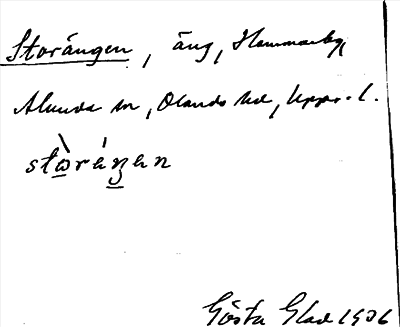 Storängen, äng, Hammarby,
Alunda sn, Olands hd, Upps. l.
stòrèŋen
Gösta Glad 1906